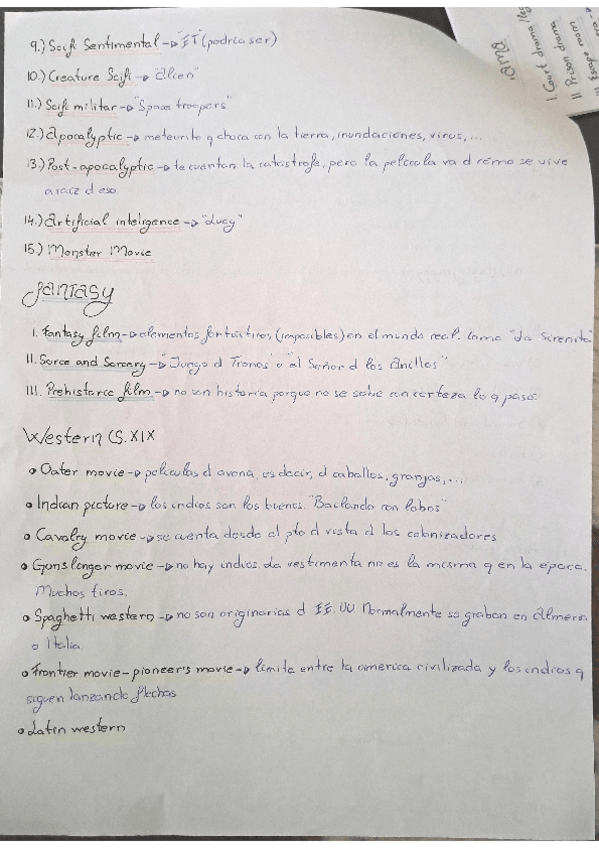 9.) Scifi Sentimental → "ET" (podria ser)
10.) Creature Scifi → "Alien"
11.) Scifi militar → "Space troopers"
12.) Apocalyptic → meteorito q choca con la tierra, inundaciones, virus, ...
13.) Post-apocalyptic → te cuentan la catastrofe, pero la pelicula va d cómo se vive
a raiz d eso.
14.) Artificial intelrgence → "Lucy"
15.) Monster Movie
Fantasy
I. Fantasy film → elementos fantasticos (imposibles) en el mundo real. Como "La Sirenita"
II. Sorce and Sorcery → "Juego d Tronos" o "el Señor d los Anillos"
III. Prehistoric film → no son historia porque no se sabe con certeza lo q pasó.
Western CS. XIX
• Oater movie → peliculas d avena, es decir, d caballos, granjas, ...
• Indian picture → los indios son los buenos. "Bailando con lobos"
• Cavalry movie → se cuenta desde el pto d vista d los colonizadores
• Gunslenger movie → no hay indios. La vestimenta no es la misma q en la época.
Muchos tiros.
• Spaghetti western → no son originarias d EE.UU Normalmente se graban en Almeria
o Italia.
• Frontier movie - pioneer's movie → limite entre la america civilizada y los indios q
siguen lanzando flechas
• Latin western
I. Court drama
II. Prison drama
III. Escape room